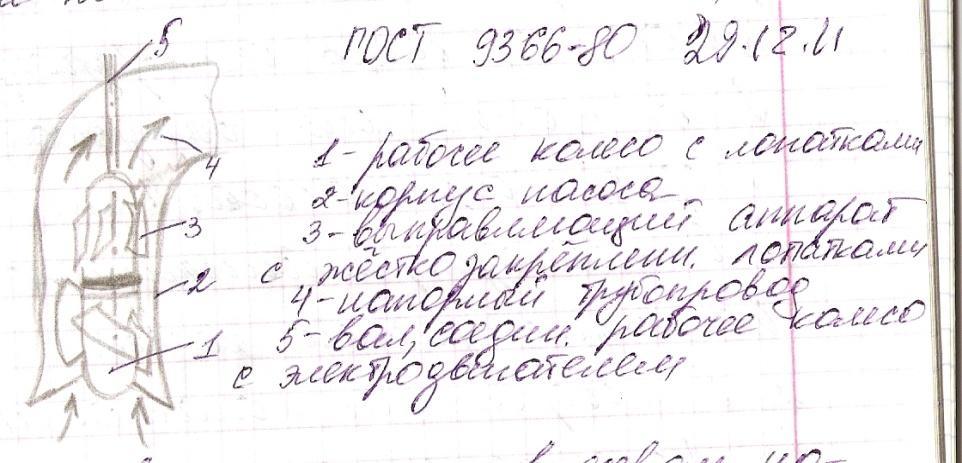 5
ГОСТ 9366-80 29.12.11
4
1- рабочее колесо с лопатками
2- корпус насоса
3
3- выправляющий аппарат
с жёстко закреплен. лопатками
2
4- напорный трубопровод
1
5- вал, соедин. рабочее колесо
с электродвигателем